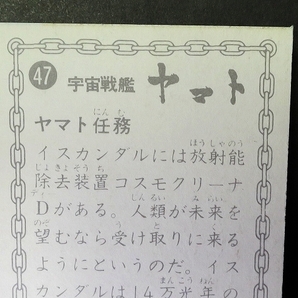 47 宇宙戦艦 ヤマト
ヤマト任務
イスカンダルには放射能
除去装置コスモクリーナ
Dがある。人類が未来を
望むなら受け取りに来る
ようにというのだ。イス
カンダルは14万光年の